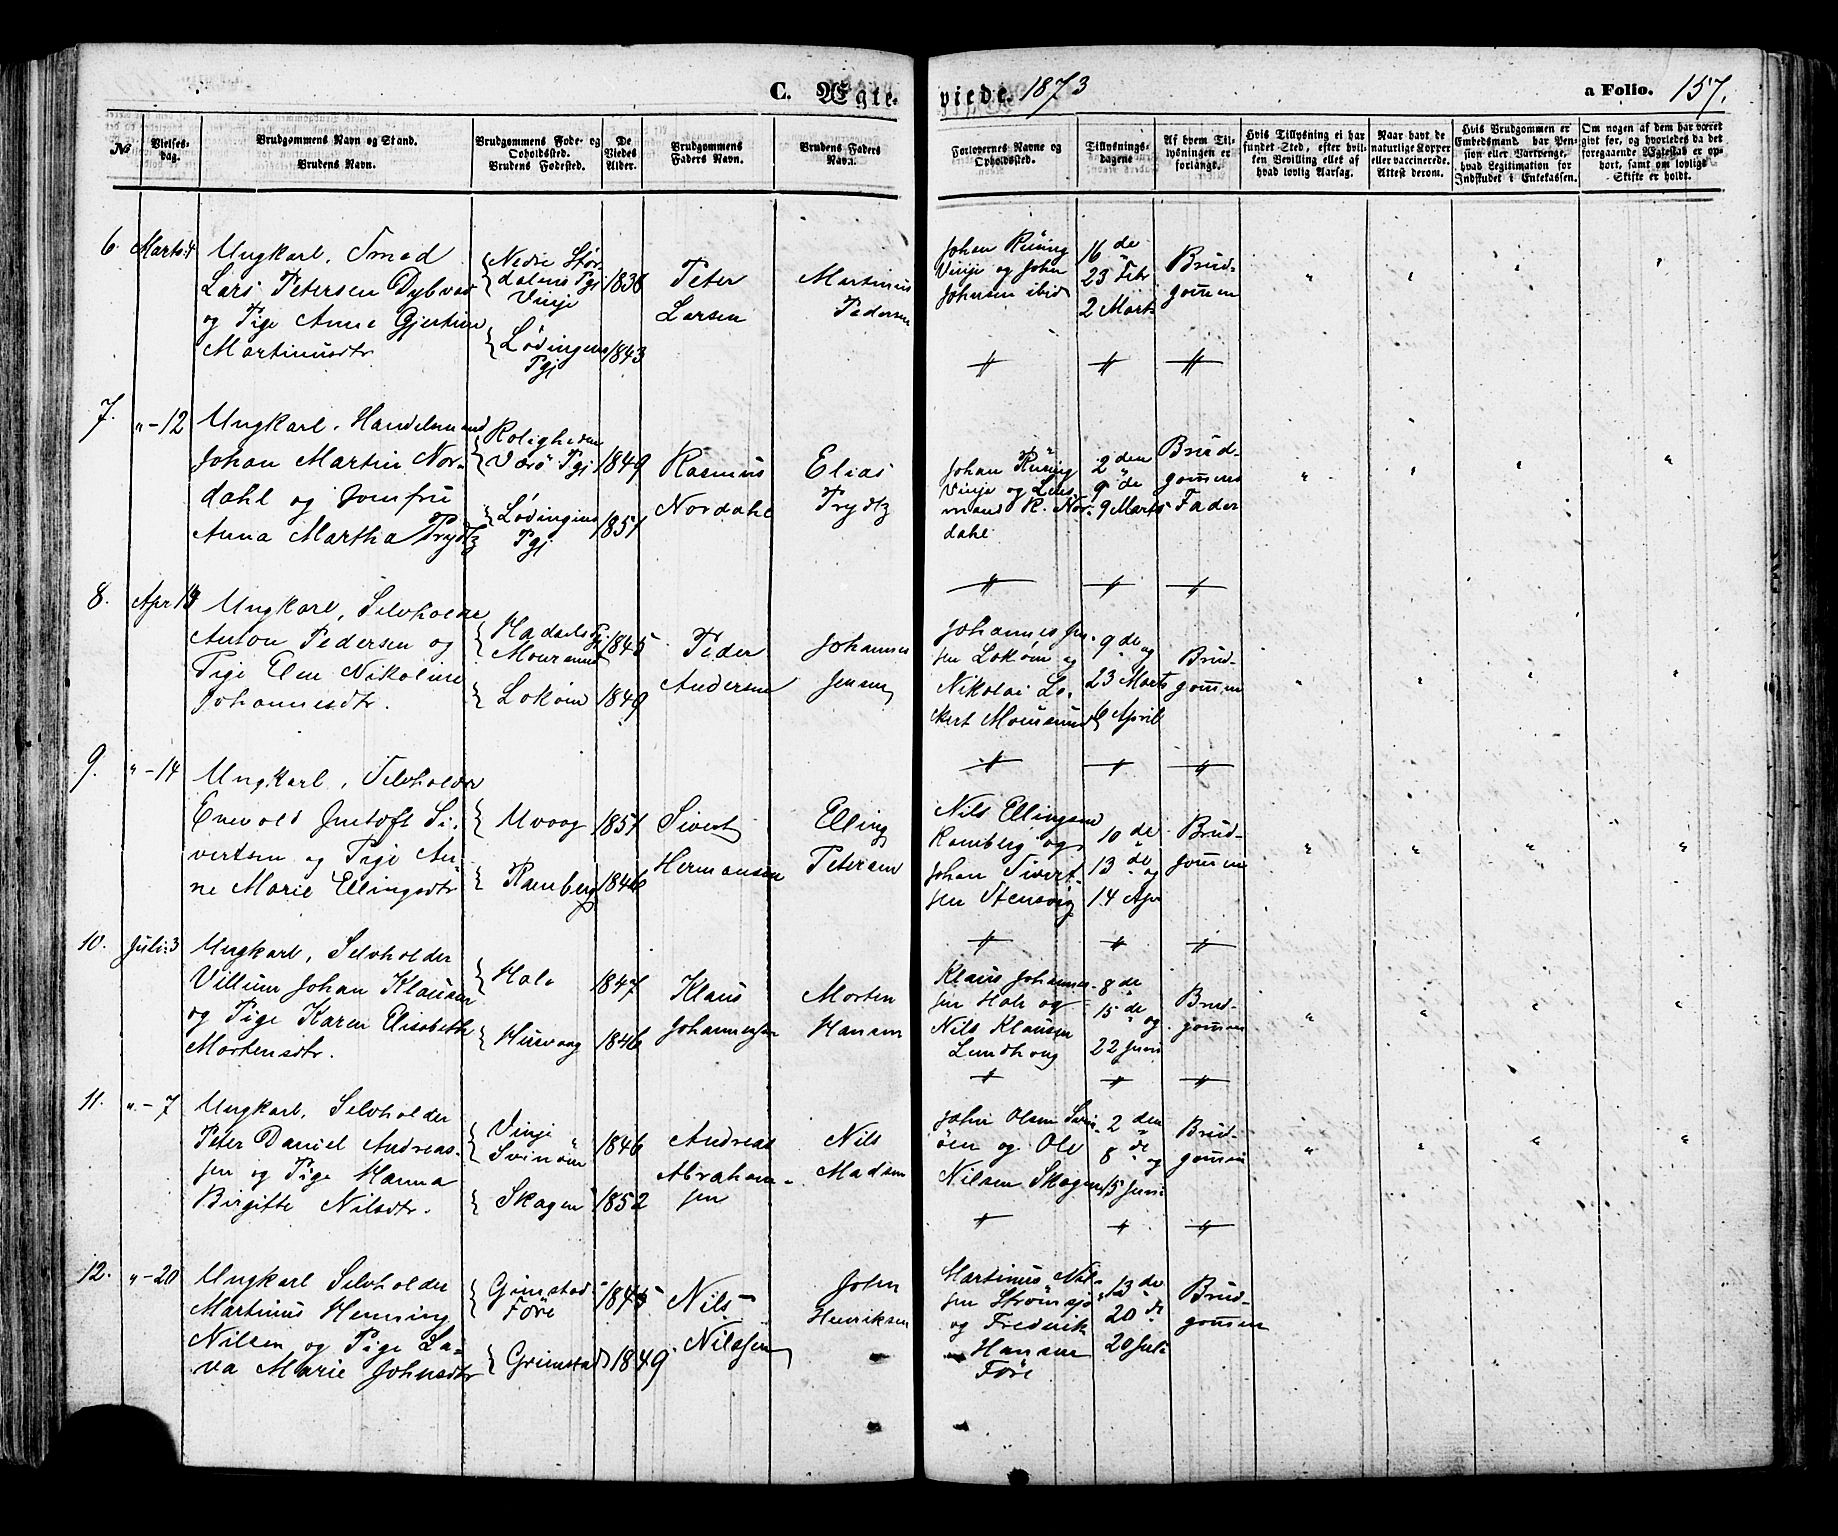 C. Ægte-
viede. 1873
a Folio. 157.
№
Vielses-
dag.
Brudgommens Navn og Stand.
Brudens Navn.
Brudgommens Føde- og
Opholdssted.
Brudens Fødested.
De
Viedes
Alder.
Brudgommens
Faders Navn.
Brudens Faders
Navn.
Forlovernes Navne og
Opholdssted.
Tillysnings-
dagene
Af hvem Til-
lysningen er
forlangt.
Hvis Tillysning ei har
fundet Sted, efter hvil-
ken Bevilling eller af
hvad lovlig Aarsag.
Naar havt de
naturlige Kopper
eller vaccinerede.
Attest derom.
Hvis Brudgommen er
Embedsmand, har Pen-
sion eller Vartpenge,
hvad Legitimation for
Indskudet i Enkekassen.
Om nogen af dem har været
givt før, og hvorledes da det
foregaaende Ægteskab er op-
hørt, samt om lovligt
Skifte er holdt.
6. Marts 4
Ungkarl, Smed
Lars Petersen Dybvad
og Pige Anne Gjertine
Martinusdtr
Nedre Stør-
dalens Pgj
Vinje
Lødingens
Pgj
1838
1843
Peter
Larsen
Martinus
Pedersen
Johan Rüning
Vinje og John
Johnsen ibid
16 de
23 Febr
2 Marts
Brud-
gommen
7. " - 12
Ungkarl, Handelsmand
Johan Martin Nor-
dahl og Jomfru
Anna Martha Trydtz
Roligheden
Værø Pgj
Lødingens
Pgj
1849
1851
Rasmus
Nordahl
Elias
Trydtz
Johan Rüning
Vinje og Lens-
mand R. Nor-
dahl
2 den
9 de
9 Marts
Brud-
gommens
Fader
8. Apr 14
Ungkarl, Selvholder
Anton Pedersen og
Pige Elen Nikoline
Johannesdtr.
Hadsels Pgj
Mousund
Lokøen
1845
1849
Peder
Andersen
Johannes
Jensen
Johannes Jen-
sen Lokøen og
Nikolai Lo-
ckert Mousund
9 de og
23 Marts
6 April
Brud-
gommen
9. " - 14
Ungkarl, Selvholder
Enevold Justoft Si-
vertsen og Pige An-
ne Marie Ellingsdtr
Uvaag
Ramberg
1851
1846
Sivert
Hermansen
Elling
Petersen
Nils Ellingsen
Ramberg og
Johan Sivert-
sen Stensvig
10 de
13 de og
14 Apr
Brud-
gommen
10. Juli 3
Ungkarl, Selvholder
Villum Johan Klausen
og Pige Karen Elisabeth
Mortensdtr.
Hole
Husvaag
1847
1846
Klaus
Johannessen
Morten
Hansen
Klaus Johannes-
sen Hole og
Nils Klausen
Lundhaug
8 de
15 de og
22 Juni
Brud-
gommen
11. " - 7
Ungkarl, Selvholder
Peter Daniel Andreas-
sen og Pige Hanna
Birgitte Nilsdtr.
Vinje
Svinøen
Skagen
1846
1852
Andreas
Abraham-
sen
Nils
Madsen
John Olsen Svin-
øen og Ole
Nilsen Skagen
2 den
8 de og
15 Juni
Brud-
gommen
12. " - 20
Ungkarl Selvholder
Martinus Henning
Nilsen og Pige La-
va Marie Johnsdtr
Grimstad
Føre
Grimstad
1845
1849
Nils
Nilssen
John
Henriksen
Martinus Nil-
sen Strømsjø
og Frederik
Hansen
Føre
13 de
20 de
20 Juli
Brud-
gommen